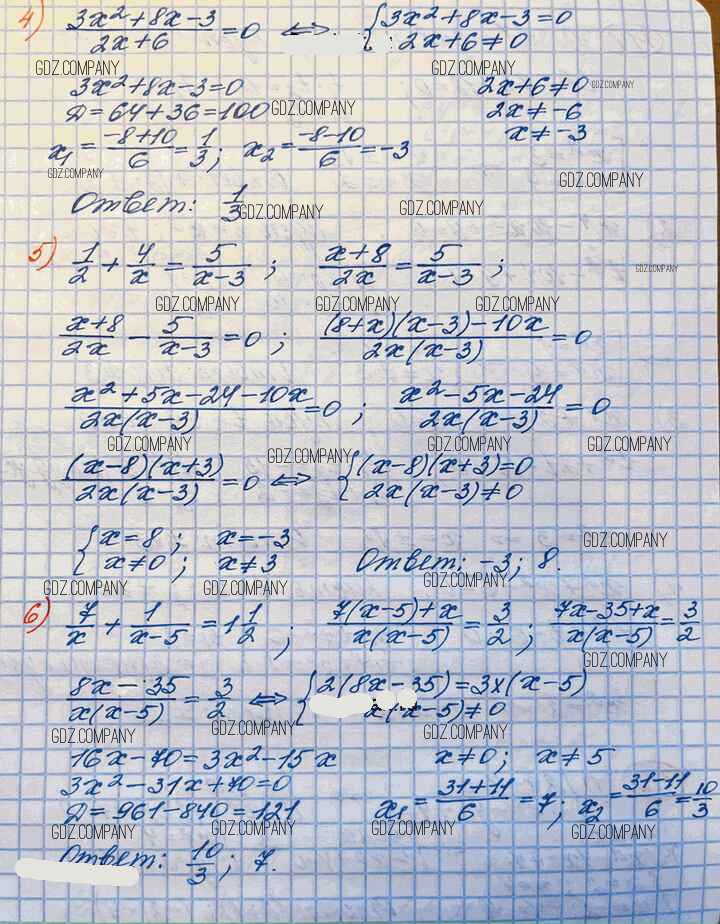 4) (3x²+8x-3)/(2x+6) = 0 <=> { 3x²+8x-3=0
2x+6≠0
GDZ.COMPANY GDZ.COMPANY
3x²+8x-3=0 2x+6≠0 GDZ.COMPANY
D=64+36=100 GDZ.COMPANY 2x≠-6
x₁ = (-8+10)/6 = 1/3; x₂ = (-8-10)/6 = -3 x≠-3
GDZ.COMPANY GDZ.COMPANY
Ответ: 1/3 GDZ.COMPANY GDZ.COMPANY
5) 1/2 + 4/x = 5/(x-3); (x+8)/2x = 5/(x-3); GDZ.COMPANY
GDZ.COMPANY GDZ.COMPANY GDZ.COMPANY
(x+8)/2x - 5/(x-3) = 0; ((8+x)(x-3)-10x)/(2x(x-3)) = 0
(x²+5x-24-10x)/(2x(x-3)) = 0; (x²-5x-24)/(2x(x-3)) = 0
GDZ.COMPANY GDZ.COMPANY GDZ.COMPANY
GDZ.COMPANY
((x-8)(x+3))/(2x(x-3)) = 0 <=> { (x-8)(x+3)=0
2x(x-3)≠0
{ x=8; x=-3 GDZ.COMPANY
x≠0; x≠3 Ответ: -3; 8.
GDZ.COMPANY GDZ.COMPANY GDZ.COMPANY
6) 7/x + 1/(x-5) = 1 1/2; (7(x-5)+x)/(x(x-5)) = 3/2; (7x-35+x)/(x(x-5)) = 3/2
GDZ.COMPANY
(8x-35)/(x(x-5)) = 3/2 <=> { 2(8x-35)=3x(x-5)
x(x-5)≠0
GDZ.COMPANY GDZ.COMPANY GDZ.COMPANY
16x-70=3x²-15x x≠0; x≠5
3x²-31x+70=0
D=961-840=121 x₁ = (31+11)/6 = 7; x₂ = (31-11)/6 = 10/3
GDZ.COMPANY GDZ.COMPANY GDZ.COMPANY GDZ.COMPANY
Ответ: 10/3; 7.